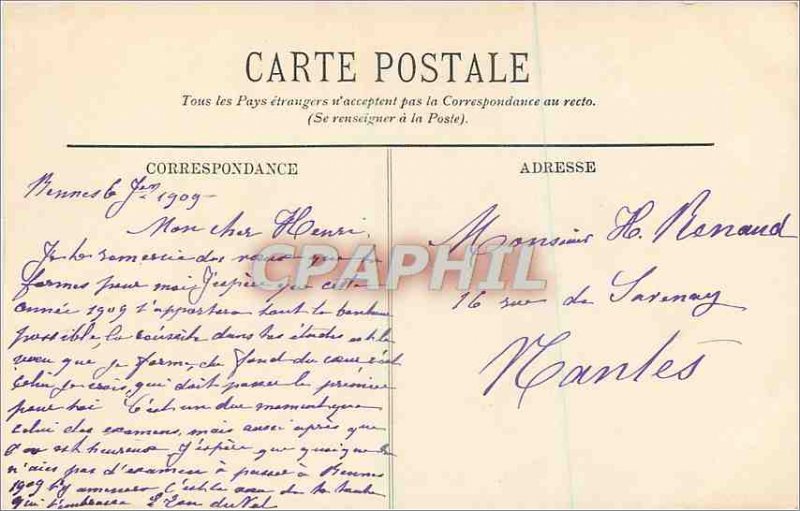 CARTE POSTALE
Tous les Pays étrangers n'acceptent pas la Correspondance au recto.
(Se renseigner à la Poste).
CORRESPONDANCE
ADRESSE
Rennes 6 Jer 1909
Mon cher Henri,
Je te remercie des vœux que tu
formes pour moi J'espère que cette
année 1909 t'apportera tout le bonheur
possible, la réussite dans tes études est le
vœu que je forme, du fond du cœur c'est
Celui je crois, qui doit passer le premier
pour toi C'est un dur moment que
celui des examens, mais aussi après que
l'on est heureux J'espère que quoique tu
n'aies pas d'examen à passer à Rennes
1909 t'y amènera C'est le vœu de ta tante
qui t'embrasse
Monsieur H. Renaud
16 rue de Savenay
Nantes
CPAPHIL